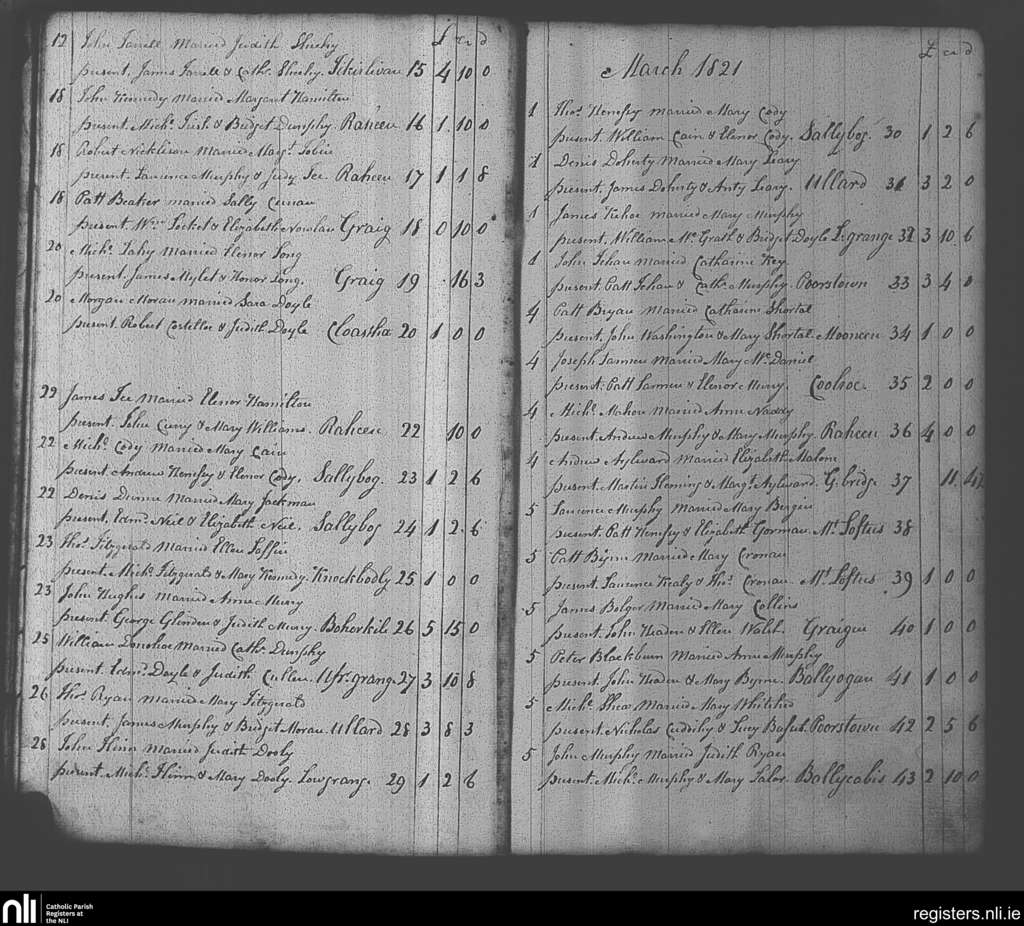 £ cr d
12 John Farrell Married Judith Sheehy
present. James Farrell & Cathe. Sheehy. 15 4 10 0
18 John Kennedy Married Margaret Hamilton
present. Michl. Irish & Bridget Dunphy. Raheen 16 1 10 0
18 Robert Nicklison Married Margt. Tobin
present. Laurence Murphy & Judy Fee. Raheen 17 1 1 8
18 Patt Beaker married Sally
present. Wm. Locket & Elizabeth Nowlan Graig 18 0 10 0
20 Michl. Fahy Married Elenor Long
present. James Mylet & Honor Long. Graig 19 16 3
20 Morgan Moran married Sara Doyle
present. Robert Costelloe & Judith Doyle Cloastha 20 1 0 0
22 James Fee Married Elenor Hamilton
present. John Curry & Mary Williams. Raheen 22 10 0
22 Michl. Cody Married Mary Cain
present. Andrew Henesy & Elenor Cody. Sallybog. 23 1 2 6
22 Denis Dunne Married Mary Jackman
present. Edmd. Neil & Elizabeth Neil. Sallybog 24 1 2 6
23 Thos. Fitzgerald Married Ellen Laffin
present. Michl. Fitzgerald & Mary Kennedy. Knockbodly 25 1 0 0
23 John Hughes Married Anne Murry
present. George Glindon & Judith Murry. Bohorkile 26 5 15 0
25 William Donohoe Married Cathe. Dunphy
present. Edmd. Doyle & Judith Cullen. Upr. grange 27 3 10 8
26 Thos. Ryan married Mary Fitzgerald
present. James Murphy & Bridget Moran. Ullard 28 3 8 3
28 John Flinn Married Judith Dooly
present. Michl. Flinn & Mary Dooly. Lowgrange 29 1 2 6
£ cr d
March 1821
1 Thos. Henesy married Mary Cody
present. William Cain & Elenor Cody. Sallybog. 30 1 2 6
1 Denis Doherty Married Mary Leary
present. James Doherty & Anty Leary. Ullard 31 3 2 0
1 James Kehoe married Mary Murphy
present. William Mc. Grath & Bridget Doyle Lr. grange 32 3 10 6
1 John Fehan Married Catharine Key
present. Patt Fehan & Cathe. Murphy. Poorstown 33 3 4 0
4 Patt Bryan Married Catharine Shortal
present. John Washington & Mary Shortal. Mooneen 34 1 0 0
4 Joseph Lannen Married Mary Mc. Daniel
present. Patt Lannen & Elenor Murry. Coolroe. 35 2 0 0
4 Michl. Mahon Married Anne Naddy
present. Andrew Murphy & Mary Murphy. Raheen 36 4 0 0
4 Andrew Aylward Married Elizabeth Malone
present. Martin Fleming & Margt. Aylward. G. bridge 37 11
5 Laurence Murphy Married Mary Bergin
present. Patt Henesy & Elizabeth Gorman. Mt. Loftus 38
5 Patt Byrne Married Mary Cronan
present. Laurence Kealy & Thos. Cronan. Mt. Loftus 39 1 0 0
5 James Bolger Married Mary Collins
present. John Headen & Ellen Walsh. Graigue 40 1 0 0
5 Peter Blackburn Married Anne Murphy
present. John Headen & Mary Byrne. Ballyogan 41 1 0 0
5 Michl. Shea Married Mary Whitehed
present. Nicholas Cuddihy & Lucy Poorstown 42 2 5 6
5 John Murphy Married Judith Ryan
present. Michl. Murphy & Mary Lalor. Ballycabis 43 2 10 0
nli
Catholic Parish
Registers at
the NLI
registers.nli.ie